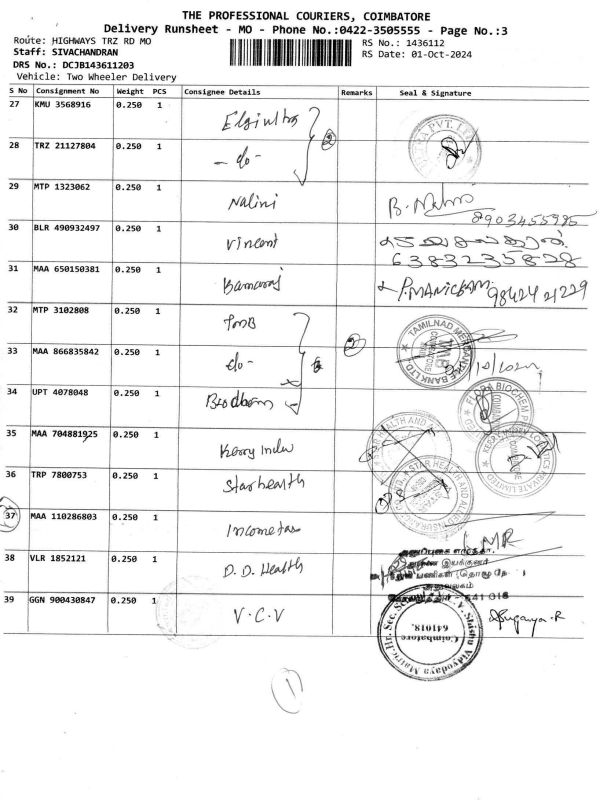 THE PROFESSIONAL COURIERS, COIMBATORE
Delivery Runsheet - MO - Phone No.:0422-3505555 - Page No.:3
Route: HIGHWAYS TRZ RD MO
RS No.: 1436112
Staff: SIVACHANDRAN
RS Date: 01-Oct-2024
DRS No.: DCJB143611203
Vehicle: Two Wheeler Delivery
S No Consignment No Weight PCS Consignee Details Remarks Seal & Signature
27 KMU 3568916 0.250 1
28 TRZ 21127804 0.250 1 - do -
29 MTP 1323062 0.250 1 Nalini B. Nalini
8903455985
30 BLR 490932497 0.250 1 Vincent
6383235828
31 MAA 650150381 0.250 1 P.MANICKAM 98424 21229
32 MTP 3102808 0.250 1 TMB
33 MAA 866835842 0.250 1 do -
34 UPT 4078048 0.250 1
35 MAA 704881925 0.250 1 Kerry Indev
36 TRP 7800753 0.250 1 Star health
37 MAA 110286803 0.250 1 Incometax
38 VLR 1852121 0.250 1 D.D. Health
அலுவலகம்
641 018
39 GGN 900430847 0.250 1 V.C.V Suganya.R
Coimbatore
641018.
1